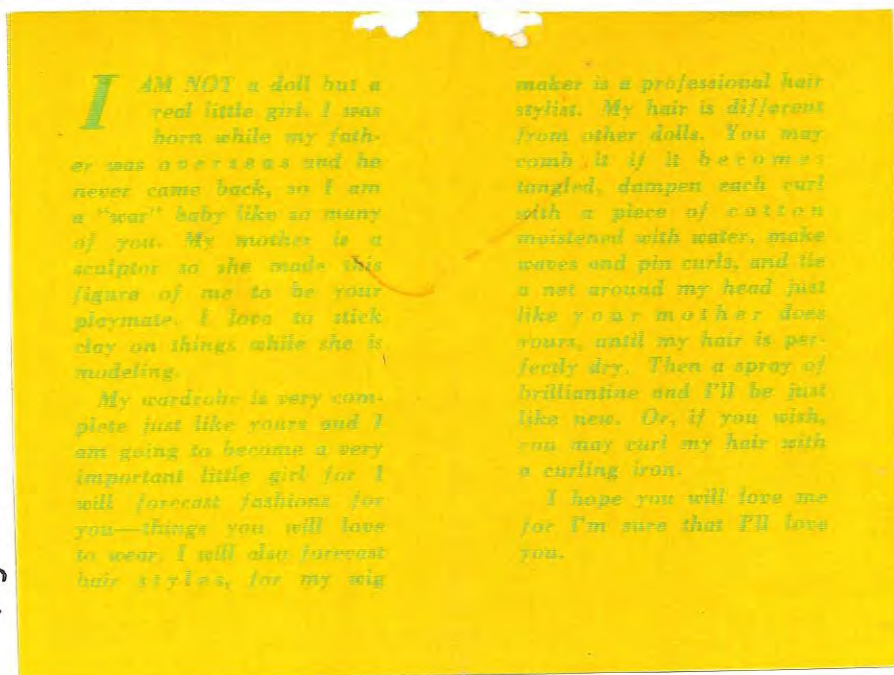 I AM NOT a doll but a
real little girl. I was
born while my fath-
er was overseas and he
never came back, so I am
a "war" baby like so many
of you. My mother is a
sculptor so she made this
figure of me to be your
playmate. I love to stick
clay on things while she is
modeling.
My wardrobe is very com-
plete just like yours and I
am going to become a very
important little girl for I
will forecast fashions for
you—things you will love
to wear. I will also forecast
hair styles, for my wig
maker is a professional hair
stylist. My hair is different
from other dolls. You may
comb it if it becomes
tangled, dampen each curl
with a piece of cotton
moistened with water, make
waves and pin curls, and tie
a net around my head just
like your mother does
yours, until my hair is per-
fectly dry. Then a spray of
brilliantine and I'll be just
like new. Or, if you wish,
you may curl my hair with
a curling iron.
I hope you will love me
for I'm sure that I'll love
you.